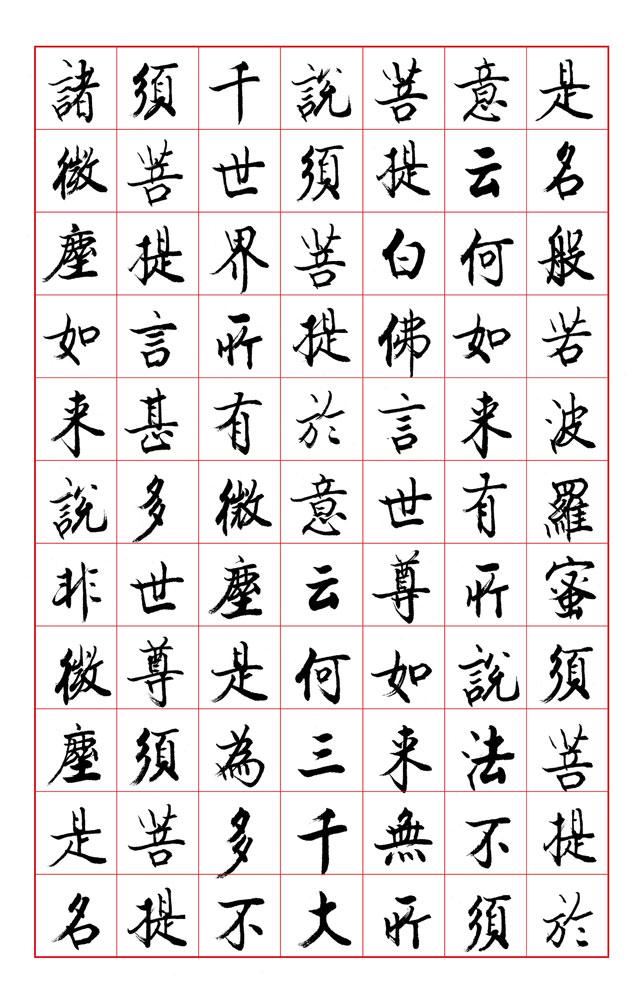 是名般若波羅蜜須菩提於
意云何如来有所說法不須
菩提白佛言世尊如来無所
說須菩提於意云何三千大
千世界所有微塵是為多不
須菩提言甚多世尊須菩提
諸微塵如来說非微塵是名